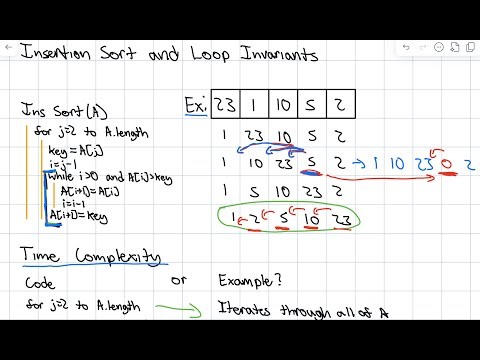 Insertion Sort and Loop Invariants
Ins Sort(A)
for j=2 to A.length
key = A[j]
i=j-1
while i>0 and A[i]>key
A[i+1]=A[i]
i=i-1
A[i+1]=key
Ex: 23 1 10 5 2
1 23 10 5 2
1 10 23 5 2 → 1 10 23 0 2
1 5 10 23 2
1 2 5 10 23
Time Complexity
Code or Example?
for j=2 to A.length → Iterates through all of A